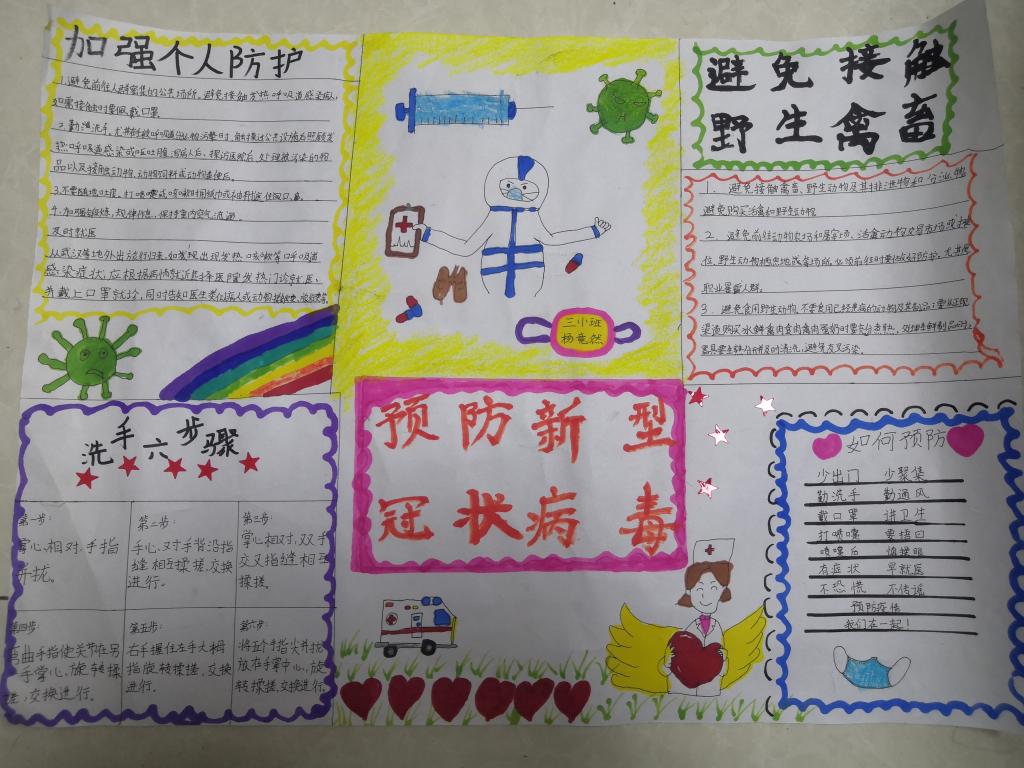 加强个人防护
1.避免前往人群密集的公共场所。避免接触发热呼吸道感染病人,
如需接触时要佩戴口罩
2.勤洗手。尤其在被呼吸道分泌物污染时、触摸过公共设施后照顾发
热呼吸道感染或呕吐腹泻病人后、探访医院后、处理被污染的物
品以及接触动物、动物饲料或动物粪便后。
3.不要随地吐痰。打喷嚏或咳嗽时用纸巾或
4.加强锻炼,规律作息,保持室内空气流通。
及时就医
从武汉等地外出旅行归来,如发现出现发热、咳嗽等呼吸道
感染症状,应根据病情就近选择医院发热门诊就医、
并戴上口罩就诊,同时告知医生类似病人或动物接触史、旅行史等
三小班
杨竞然
避免接触
野生禽畜
1. 避免接触禽畜、野生动物及其排泄物和分泌物
避免购买活禽和野生动物
2. 避免前往动物农场和屠宰场、活禽动物交易市场或摊
位、野生动物栖息地等场所。必须前往时要做好防护,尤其是
职业暴露人群。
3. 避免食用野生动物。不要食用已经患病的动物及其制品;要从正规
渠道购买冰鲜禽肉食用禽肉蛋奶时要充分煮熟,处理生鲜制品时,
器具要生熟分开并及时清洗,避免交叉污染。
洗手六步骤
第一步:
掌心相对,手指
并拢。
第二步:
手心对手背沿指
缝相互揉搓,交换
进行。
第三步:
掌心相对,双手
交叉指缝相互
揉搓。
第四步:
弯曲手指使关节在另
一手掌心旋转揉
搓,交换进行。
第五步:
右手握住左手大拇
指旋转揉搓,交换
进行。
第六步:
将五个手指尖并拢
放在手掌心,旋
转揉搓,交换进行。
预防新型
冠状病毒
如何预防
少出门 少聚集
勤洗手 勤通风
戴口罩 讲卫生
打喷嚏 要捂口
喷嚏后 慎揉眼
有症状 早就医
不恐慌 不传谣
预防疫情
我们在一起!